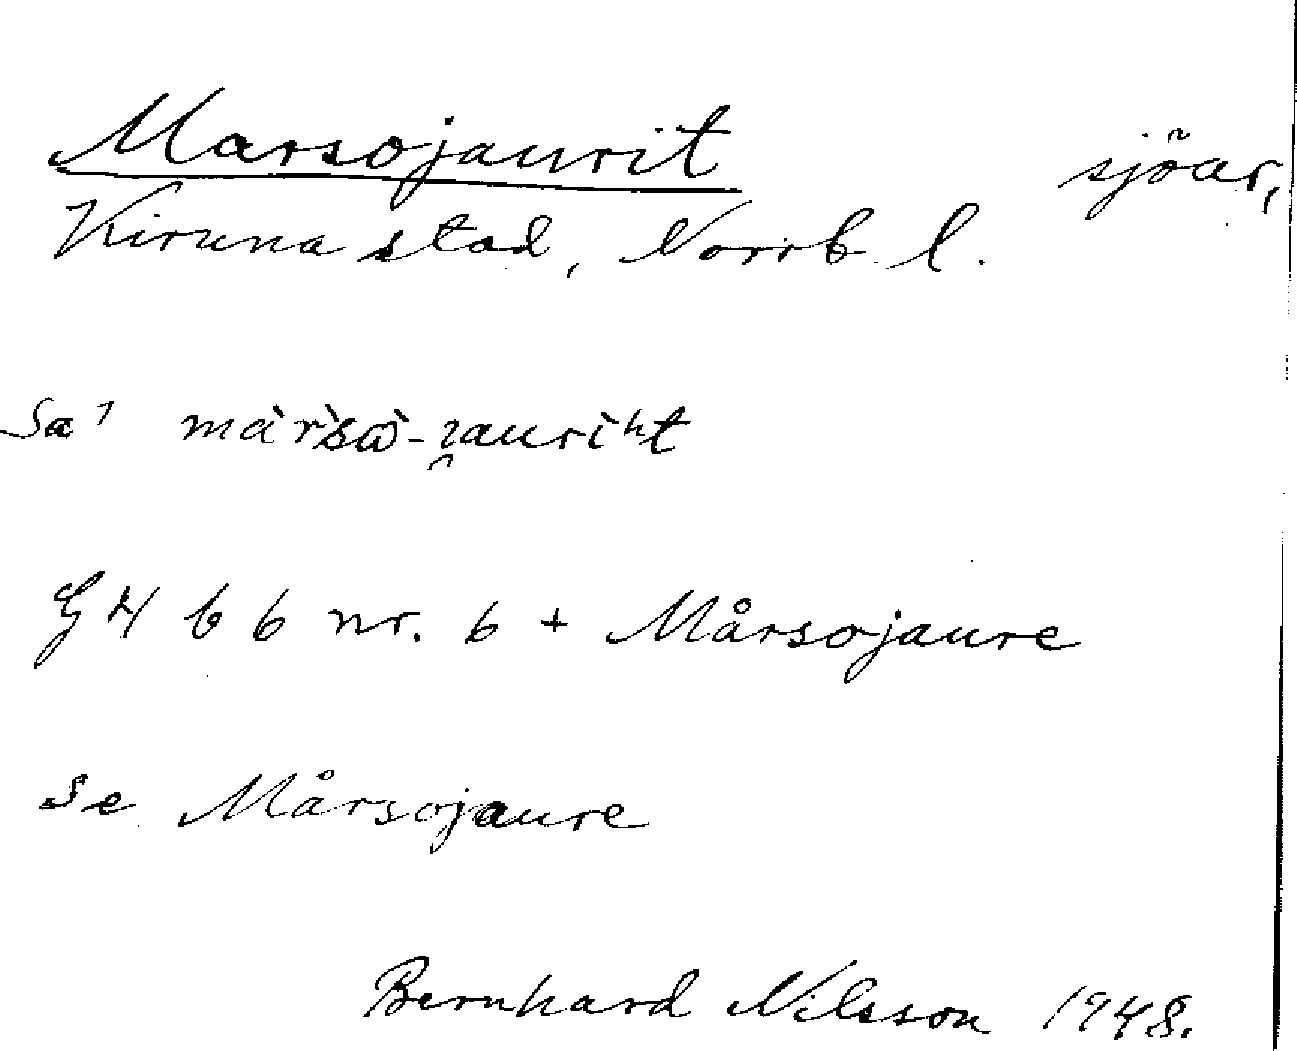 Marsojaurit sjöar,
Kiruna stad, Norrb. l.
Sa'
G 4 b 6 nr. 6 + Mårsojaure
Se Mårsojaure
Bernhard Nilsson 1948.